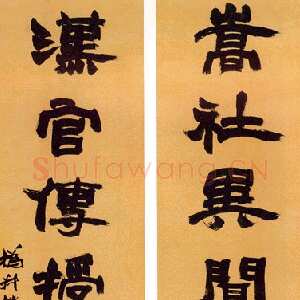 嵩社異聞
漢官傳授
Shufawang.CN